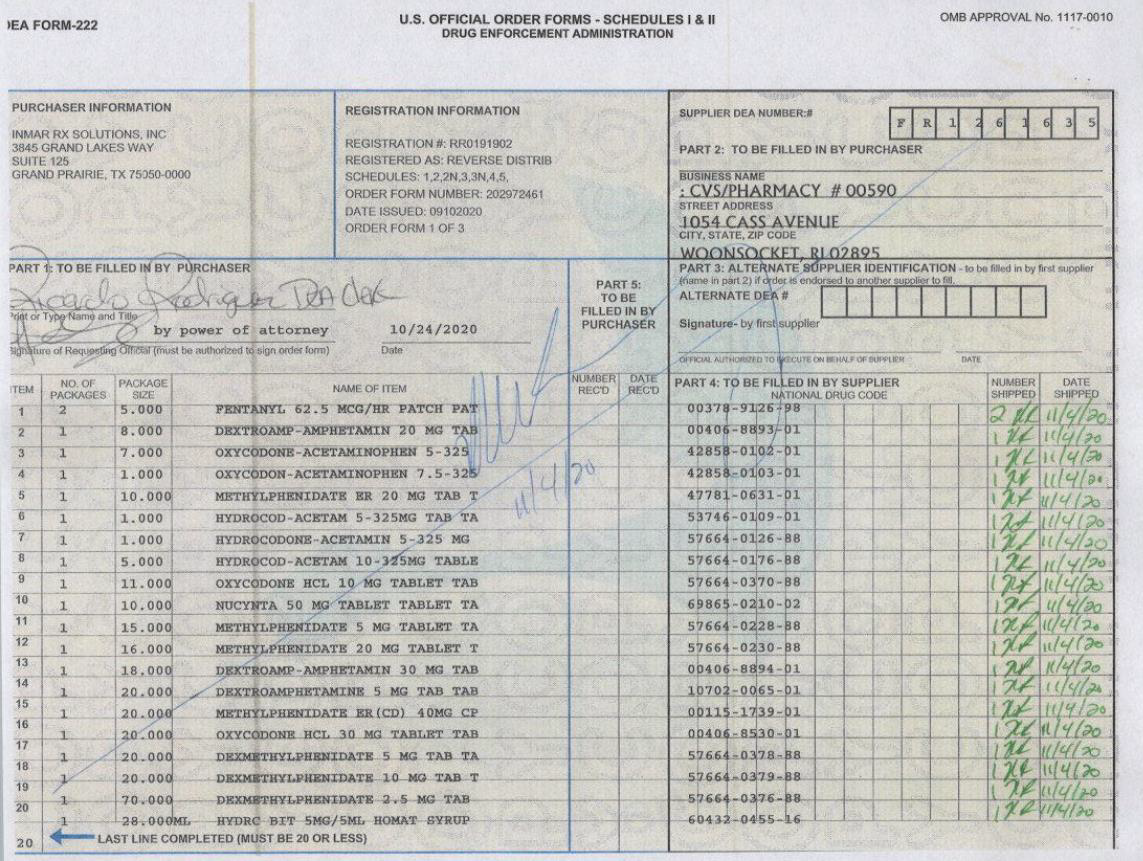 DEA FORM-222
U.S. OFFICIAL ORDER FORMS - SCHEDULES I & II
DRUG ENFORCEMENT ADMINISTRATION
OMB APPROVAL No. 1117-0010
PURCHASER INFORMATION
INMAR RX SOLUTIONS, INC
3845 GRAND LAKES WAY
SUITE 125
GRAND PRAIRIE, TX 75050-0000
REGISTRATION INFORMATION
REGISTRATION #: RR0191902
REGISTERED AS: REVERSE DISTRIB
SCHEDULES: 1,2,2N,3,3N,4,5,
ORDER FORM NUMBER: 202972461
DATE ISSUED: 09102020
ORDER FORM 1 OF 3
SUPPLIER DEA NUMBER:# F R 1 2 6 1 6 3 5
PART 2: TO BE FILLED IN BY PURCHASER
BUSINESS NAME
: CVS/PHARMACY # 00590
STREET ADDRESS
1054 CASS AVENUE
CITY, STATE, ZIP CODE
WOONSOCKET, RI,02895
PART 1: TO BE FILLED IN BY PURCHASER
Ricardo Rodriguez DEA Clerk
Print or Type Name and Title
by power of attorney 10/24/2020
Signature of Requesting Official (must be authorized to sign order form) Date
PART 5:
TO BE
FILLED IN BY
PURCHASER
PART 3: ALTERNATE SUPPLIER IDENTIFICATION - to be filled in by first supplier
(name in part 2) if order is endorsed to another supplier to fill.
ALTERNATE DEA #
Signature- by first supplier
OFFICIAL AUTHORIZED TO EXECUTE ON BEHALF OF SUPPLIER DATE
ITEM NO. OF PACKAGES PACKAGE SIZE NAME OF ITEM NUMBER REC'D DATE REC'D PART 4: TO BE FILLED IN BY SUPPLIER NATIONAL DRUG CODE NUMBER SHIPPED DATE SHIPPED
1 2 5.000 FENTANYL 62.5 MCG/HR PATCH PAT 00378-9126-98 2 11/4/20
2 1 8.000 DEXTROAMP-AMPHETAMIN 20 MG TAB 00406-8893-01 1 11/4/20
3 1 7.000 OXYCODONE-ACETAMINOPHEN 5-325 42858-0102-01 1 11/4/20
4 1 1.000 OXYCODON-ACETAMINOPHEN 7.5-325 42858-0103-01 1 11/4/20
5 1 10.000 METHYLPHENIDATE ER 20 MG TAB T 47781-0631-01 1 11/4/20
6 1 1.000 HYDROCOD-ACETAM 5-325MG TAB TA 53746-0109-01 1 11/4/20
7 1 1.000 HYDROCODONE-ACETAMIN 5-325 MG 57664-0126-88 1 11/4/20
8 1 5.000 HYDROCOD-ACETAM 10-325MG TABLE 57664-0176-88 1 11/4/20
9 1 11.000 OXYCODONE HCL 10 MG TABLET TAB 57664-0370-88 1 11/4/20
10 1 10.000 NUCYNTA 50 MG TABLET TABLET TA 69865-0210-02 1 11/4/20
11 1 15.000 METHYLPHENIDATE 5 MG TABLET TA 57664-0228-88 1 11/4/20
12 1 16.000 METHYLPHENIDATE 20 MG TABLET T 57664-0230-88 1 11/4/20
13 1 18.000 DEXTROAMP-AMPHETAMIN 30 MG TAB 00406-8894-01 1 11/4/20
14 1 20.000 DEXTROAMPHETAMINE 5 MG TAB TAB 10702-0065-01 1 11/4/20
15 1 20.000 METHYLPHENIDATE ER(CD) 40MG CP 00115-1739-01 1 11/4/20
16 1 20.000 OXYCODONE HCL 30 MG TABLET TAB 00406-8530-01 1 11/4/20
17 1 20.000 DEXMETHYLPHENIDATE 5 MG TAB TA 57664-0378-88 1 11/4/20
18 1 20.000 DEXMETHYLPHENIDATE 10 MG TAB T 57664-0379-88 1 11/4/20
19 1 70.000 DEXMETHYLPHENIDATE 2.5 MG TAB 57664-0376-88 1 11/4/20
20 1 28.000ML HYDRC BIT 5MG/5ML HOMAT SYRUP 60432-0455-16 1 11/4/20
11/4/20
20 LAST LINE COMPLETED (MUST BE 20 OR LESS)